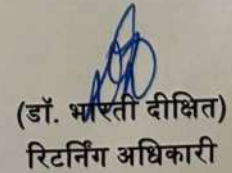 (डॉ. भारती दीक्षित)
रिटर्निंग अधिकारी